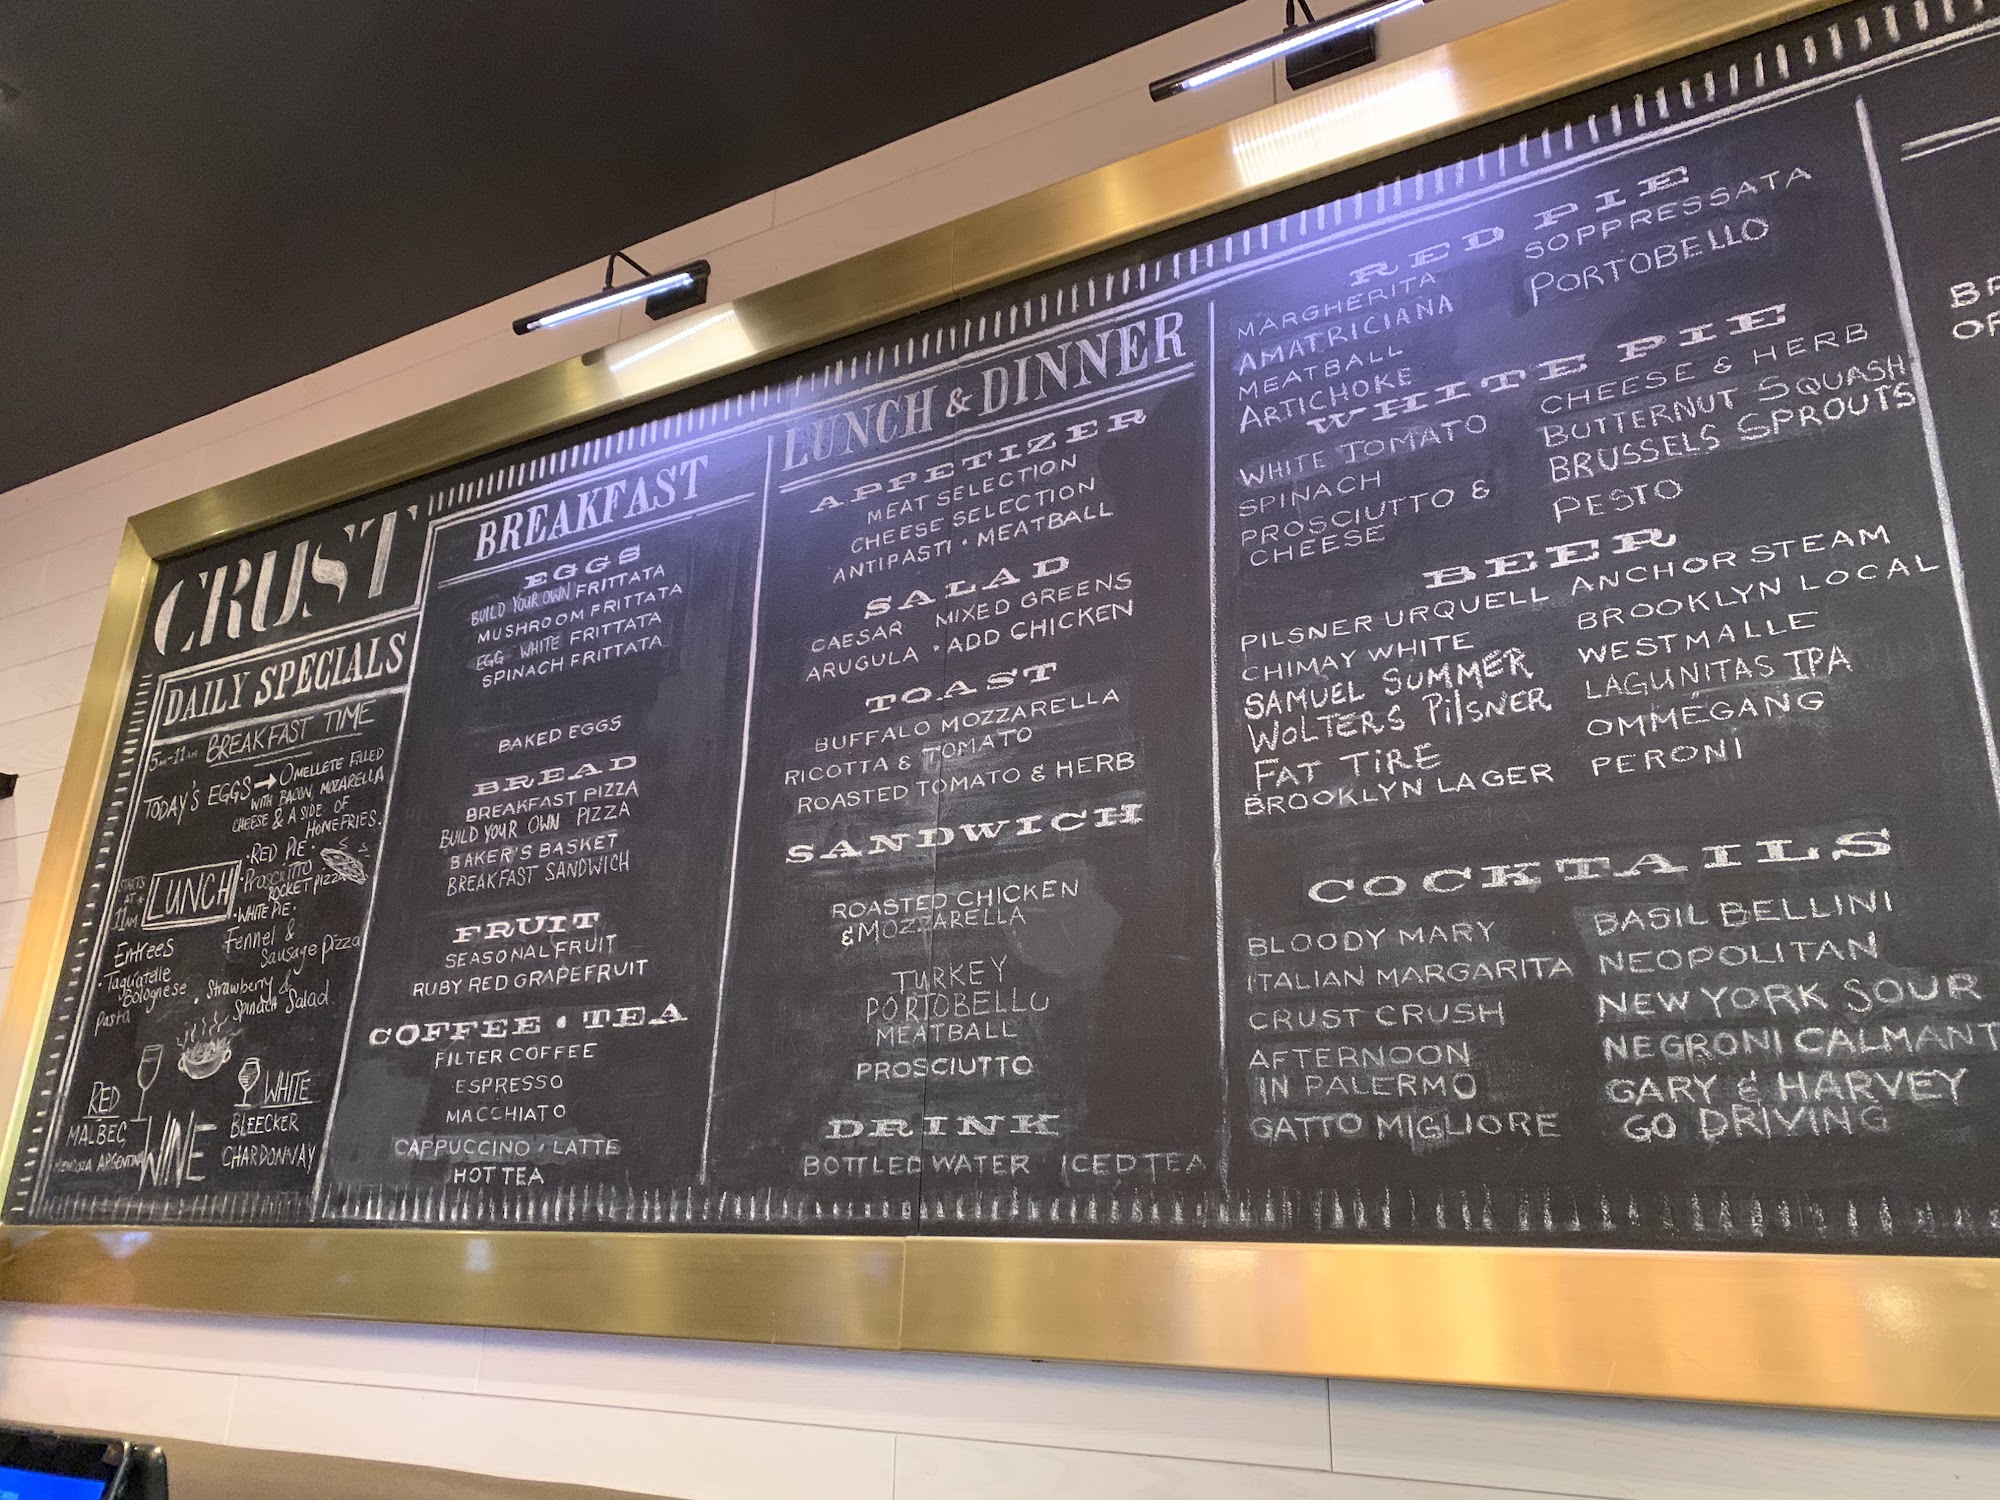 CRUST
DAILY SPECIALS
5AM-11AM BREAKFAST TIME
TODAY'S EGGS → OMELLETE FILLED
WITH BACON, MOZARELLA
CHEESE & A SIDE OF
HOMEFRIES.
STARTS
AT
11AM
LUNCH
·RED PIE·
·PROSCIUTTO
ROCKET PIZZA
·WHITE PIE·
Fennel &
Sausage Pizza
Entrees
·Tagliatelle
Bolognese
Pasta
·Strawberry &
Spinach Salad
RED
MALBEC,
MENDOZA ARGENTINA
WINE
WHITE
BLEECKER
CHARDONNAY
BREAKFAST
EGGS
BUILD YOUR OWN FRITTATA
MUSHROOM FRITTATA
EGG WHITE FRITTATA
SPINACH FRITTATA
BAKED EGGS
BREAD
BREAKFAST PIZZA
BUILD YOUR OWN PIZZA
BAKER'S BASKET
BREAKFAST SANDWICH
FRUIT
SEASONAL FRUIT
RUBY RED GRAPEFRUIT
COFFEE · TEA
FILTER COFFEE
ESPRESSO
MACCHIATO
CAPPUCCINO · LATTE
HOT TEA
LUNCH & DINNER
APPETIZER
MEAT SELECTION
CHEESE SELECTION
ANTIPASTI · MEATBALL
SALAD
CAESAR MIXED GREENS
ARUGULA · ADD CHICKEN
TOAST
BUFFALO MOZZARELLA
RICOTTA & TOMATO
ROASTED TOMATO & HERB
SANDWICH
ROASTED CHICKEN
& MOZZARELLA
TURKEY
PORTOBELLO
MEATBALL
PROSCIUTTO
DRINK
BOTTLED WATER ICED TEA
RED PIE
MARGHERITA
AMATRICIANA
MEATBALL
ARTICHOKE
SOPPRESSATA
PORTOBELLO
WHITE PIE
WHITE TOMATO
SPINACH
PROSCIUTTO &
CHEESE
CHEESE & HERB
BUTTERNUT SQUASH
BRUSSELS SPROUTS
PESTO
BEER
PILSNER URQUELL
CHIMAY WHITE
SAMUEL SUMMER
WOLTERS PilSNER
FAT TiRE
BROOKLYN LAGER
ANCHOR STEAM
BROOKLYN LOCAL
WESTMALLE
LAGUNITAS IPA
OMMEGANG
PERONI
COCKTAILS
BLOODY MARY
ITALIAN MARGARITA
CRUST CRUSH
AFTERNOON
IN PALERMO
GATTO MIGLIORE
BASIL BELLINI
NEOPOLITAN
NEW YORK SOUR
NEGRONI CALMANT
GARY & HARVEY
GO DRIVING